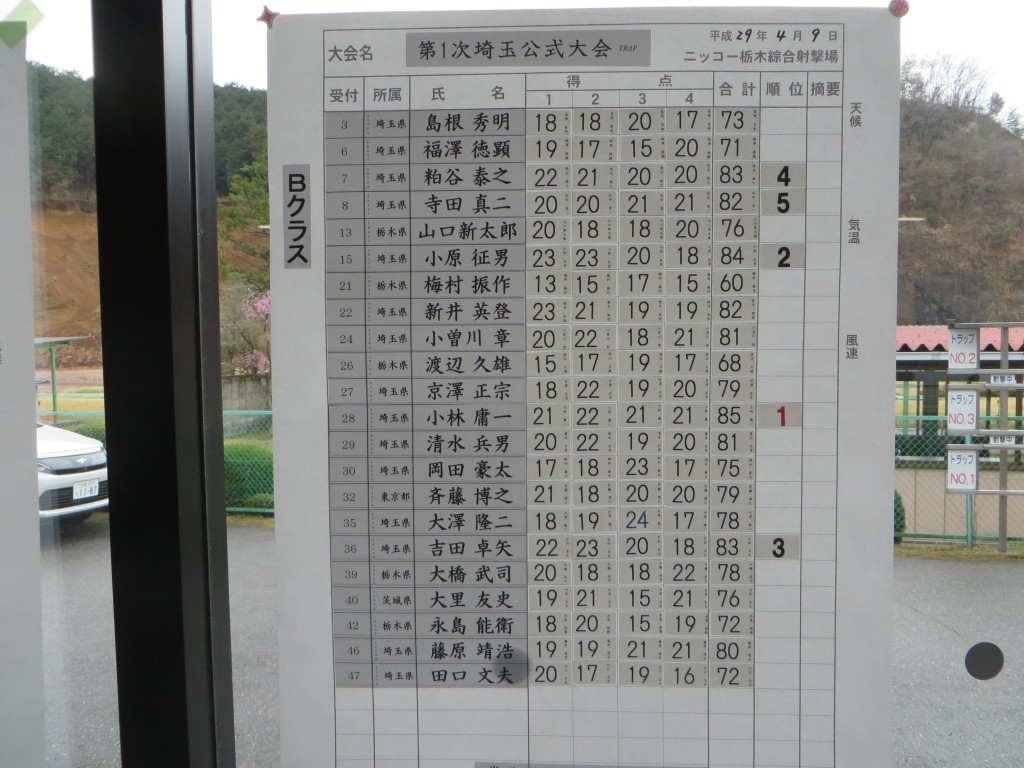 平成 29 年 4 月 9 日
大会名 第1次埼玉公式大会 TRAP ニッコー栃木綜合射撃場
受付 所属 氏 名 得 点 合計 順位 摘要
1 2 3 4
3 埼玉県 島根 秀明 18 18 20 17 73
6 埼玉県 福澤 徳顕 19 17 15 20 71
7 埼玉県 粕谷 泰之 22 21 20 20 83 4
8 埼玉県 寺田 真二 20 20 21 21 82 5
13 栃木県 山口新太郎 20 18 18 20 76
15 埼玉県 小原 征男 23 23 20 18 84 2
21 栃木県 梅村 振作 13 15 17 15 60
22 埼玉県 新井 英登 23 21 19 19 82
24 埼玉県 小曽川 章 20 22 18 21 81
26 栃木県 渡辺 久雄 15 17 19 17 68
27 埼玉県 京澤 正宗 18 22 19 20 79
28 埼玉県 小林 庸一 21 22 21 21 85 1
29 埼玉県 清水 兵男 20 22 19 20 81
30 埼玉県 岡田 豪太 17 18 23 17 75
32 東京都 斉藤 博之 21 18 20 20 79
35 埼玉県 大澤 隆二 18 19 24 17 78
36 埼玉県 吉田 卓矢 22 23 20 18 83 3
39 栃木県 大橋 武司 20 18 18 22 78
40 茨城県 大里 友史 19 21 15 21 76
42 栃木県 永島 能衛 18 20 15 19 72
46 埼玉県 藤原 靖浩 19 19 21 21 80
47 埼玉県 田口 文夫 20 17 19 16 72
Bクラス
天候
気温
風速
トラップ
NO.2
射撃中
トラップ
NO.3
射撃中
トラップ
NO.1
11-87